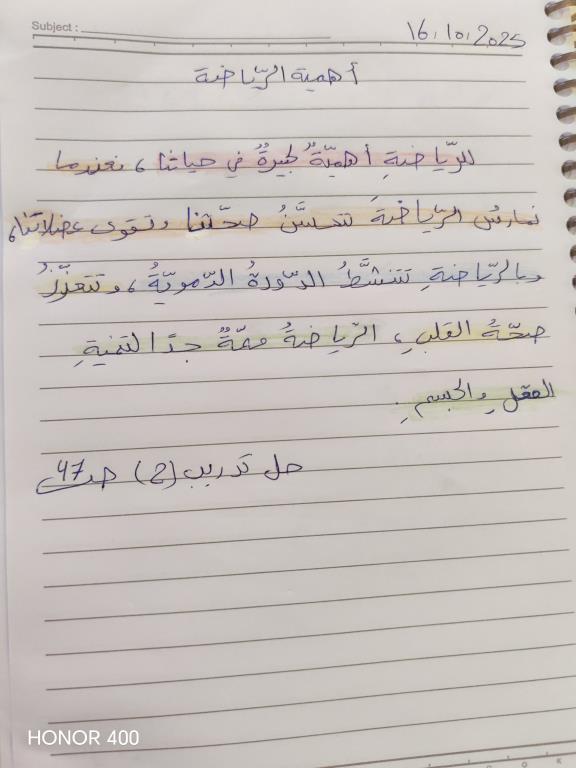 Subject :
16.10.2025
أهمية الرّياضة
للرّياضةِ أهميّةٌ كبيرةٌ في حياتنا، فعندما
نمارسُ الرّياضةَ تتحسَّنُ صحّتنا وتقوى عضلاتنا،
وبالرّياضةِ تتنشَّطُ الدّورةُ الدّمويّةُ، وتتعزّزُ
صحّةُ القلبِ، الرّياضةُ مهمّةٌ جدًا لتنميةِ
العقلِ والجسمِ.
حل تدريب (2) صـ 47
HONOR 400